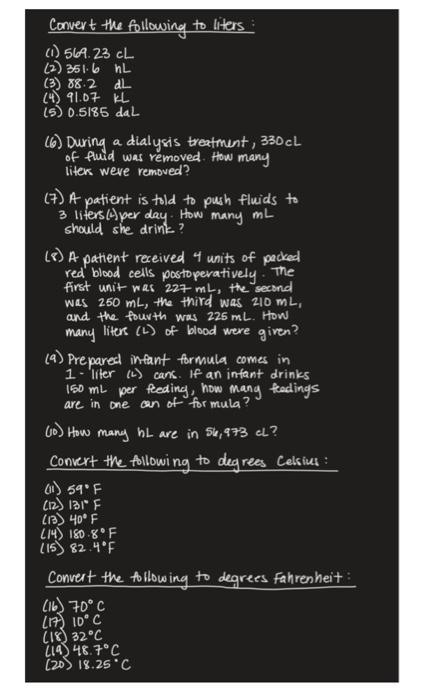 Convert the following to liters :
(1) 569.23 cL
(2) 351.6 hL
(3) 88.2 dL
(4) 91.07 kL
(5) 0.5185 daL
(6) During a dialysis treatment, 330cL
of fluid was removed. How many
liters were removed?
(7) A patient is told to push fluids to
3 liters(L) per day. How many mL
should she drink?
(8) A patient received 4 units of packed
red blood cells postoperatively. The
first unit was 227 mL, the second
was 250 mL, the third was 210 mL,
and the fourth was 225 mL. How
many liters (L) of blood were given?
(9) Prepared infant formula comes in
1-liter (L) cans. If an infant drinks
150 mL per feeding, how many feedings
are in one can of formula?
(10) How many hL are in 56,973 cL?
Convert the following to degrees Celsius :
(11) 59° F
(12) 131° F
(13) 40° F
(14) 180.8° F
(15) 82.4°F
Convert the following to degrees Fahrenheit :
(16) 70° C
(17) 10° C
(18) 32°C
(19) 48.7°C
(20) 18.25°C